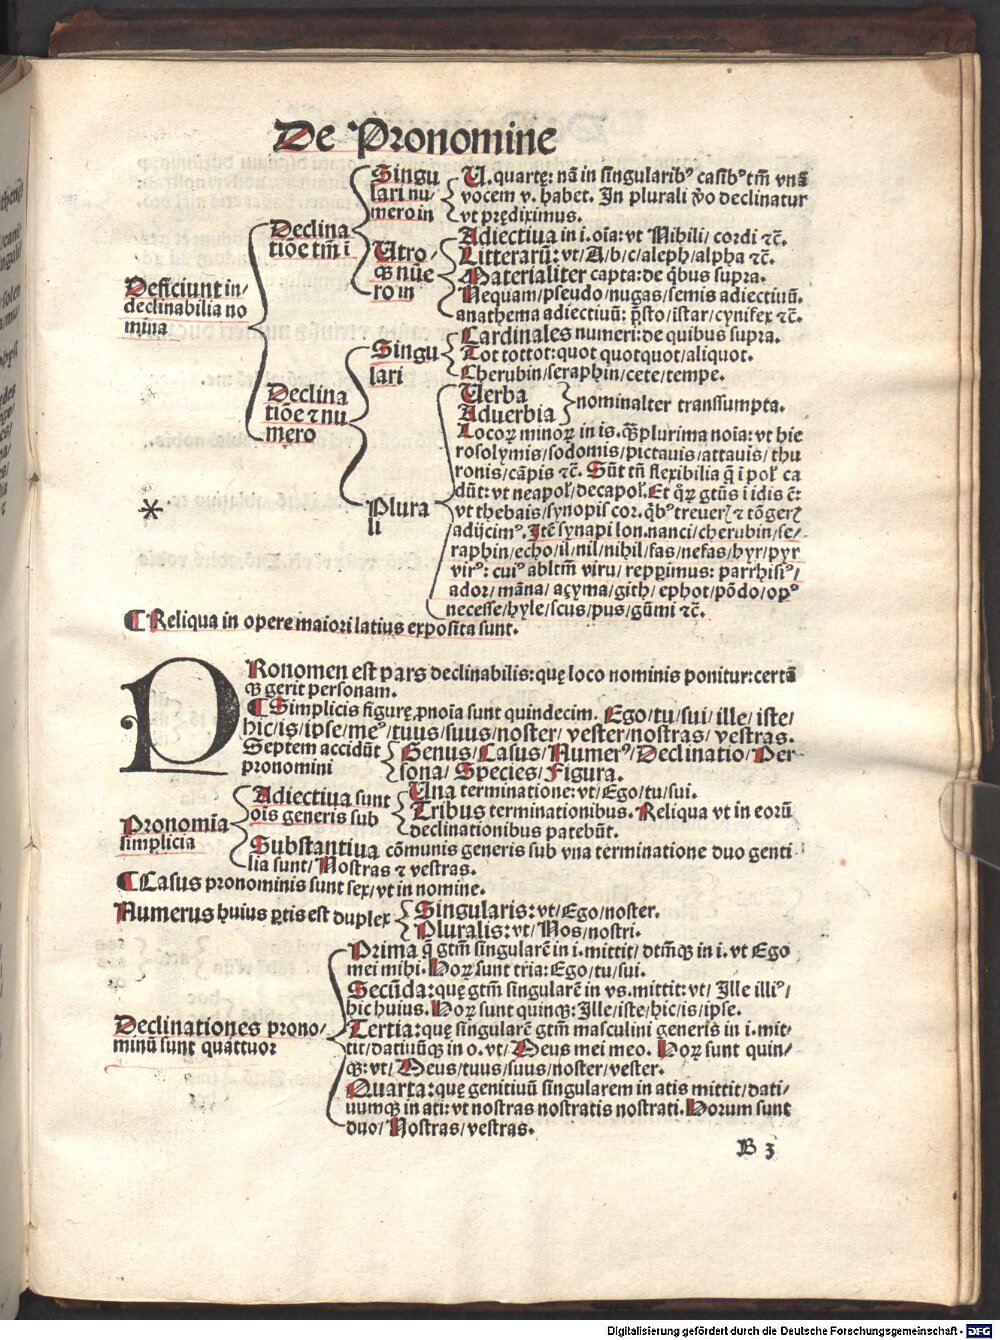 De Pronomine
Deficiunt in/
declinabilia no
mina
Declina
tiōe tm̄ ī
Singu
lari nu/
mero in
U. quartę: nā in singularibꝰ casibꝰ tm̄ vnā
vocem v. habet. In plurali v̄o declinatur
vt prędiximus.
Utro/
qꝫ nūe
ro in
Adiectiua in i. oīa: vt Nihili/ cordi ⁊c̄.
Litterarū: vt/ A/b/c/aleph/alpha ⁊c̄.
Materialiter capta: de q̄bus supra.
Nequam/pseudo/nugas/semis adiectiuū.
anathema adiectiuū: p̄sto/istar/cynifex ⁊c̄.
Declina
tiōe ⁊ nu
mero
Singu
lari
Cardinales numeri: de quibus supra.
Tot tottot: quot quotquot/aliquot.
Cherubin/seraphin/cete/tempe.
Plura
li
Uerba
Aduerbia
nominalter transsumpta.
Locoꝝ minoꝝ in is. qꝫplurima noīa: vt hie
rosolymis/sodomis/pictauis/attauis/thu
ronis/cāpis ⁊c̄. Sūt tn̄ flexibilia q̄ i pol̄ ca
dūt: vt neapol̄/decapol̄. Et qꝝ gtūs i idis c̄:
vt thebais/synopis cor. q̄bꝰ treuerꝝ ⁊ tōgerꝝ
adijcimꝰ. Itē synapi lon. nanci/cherubin/se/
raphin/echo/il/nil/nihil/fas/nefas/hyr/pyr
virꝰ: cuiꝰ abltm̄ viru/ repp̄imus: parrhisiꝰ/
ador/māna/açyma/gith/ephot/pōdo/opꝰ
necesse/hyle/scus/pus/gūmi ⁊c̄.
*
¶ Reliqua in opere maiori latius exposita sunt.
PRonomen est pars declinabilis: quę loco nominis ponitur: certā
qꝫ gerit personam.
¶ Simplicis figurę ꝓnoīa sunt quindecim. Ego/tu/sui/ ille/ iste/
hic/is/ipse/meꝰ/tuus/suus/noster/ vester/nostras/ vestras.
Septem accidūt
pronomini
Genus/ Casus/ Numerꝰ/ Declinatio/ Per-
sona/ Species/ Figura.
Pronomīa
simplicia
Adiectiua sunt
oīs generis sub
Una terminatione: vt/Ego/tu/sui.
Tribus terminationibus. Reliqua vt in eorū
declinationibus patebūt.
Substantiua cōmunis generis sub vna terminatione duo genti
lia sunt/ Nostras ⁊ vestras.
¶ Casus pronominis sunt sex/vt in nomine.
Numerus huius ꝑtis est duplex
Singularis: vt/Ego/noster.
Pluralis: vt/ Nos/nostri.
Declinationes prono/
minū sunt quattuor
Prima q̄ gtm̄ singularē in i. mittit/ dtm̄qꝫ in i. vt Ego
mei mihi. Hoꝝ sunt tria: Ego/tu/sui.
Secūda: quę gtm̄ singularē in vs. mittit: vt/ Ille illiꝰ/
hic huius. Hoꝝ sunt quinqꝫ: Ille/iste/hic/is/ipse.
Tertia: quę singularē gtm̄ masculini generis in i. mit-
tit/datiuūqꝫ in o. vt/ Meus mei meo. Hoꝝ sunt quin/
qꝫ: vt/ Meus/tuus/suus/noster/vester.
Quarta: quę genitiuū singularem in atis mittit/dati/
uumqꝫ in ati: vt nostras nostratis nostrati. Horum sunt
duo/ Nostras/ vestras.
B 3
Digitalisierung gefördert durch die Deutsche Forschungsgemeinschaft - DFG